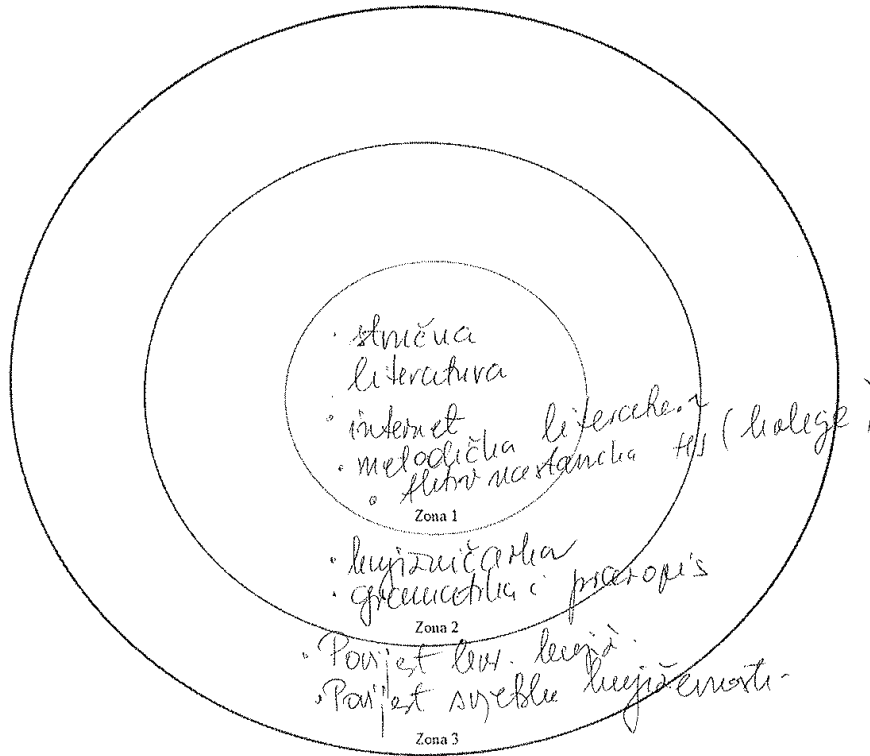 · stručna
literatura
· internet
· metodička literatura
· Aktiv nastavnika HJ (kolege)
Zona 1
· knjižničarka
· gramatika i pravopis
Zona 2
· Povijest hrv. knjiž.
· Povijest svjetske književnosti
Zona 3